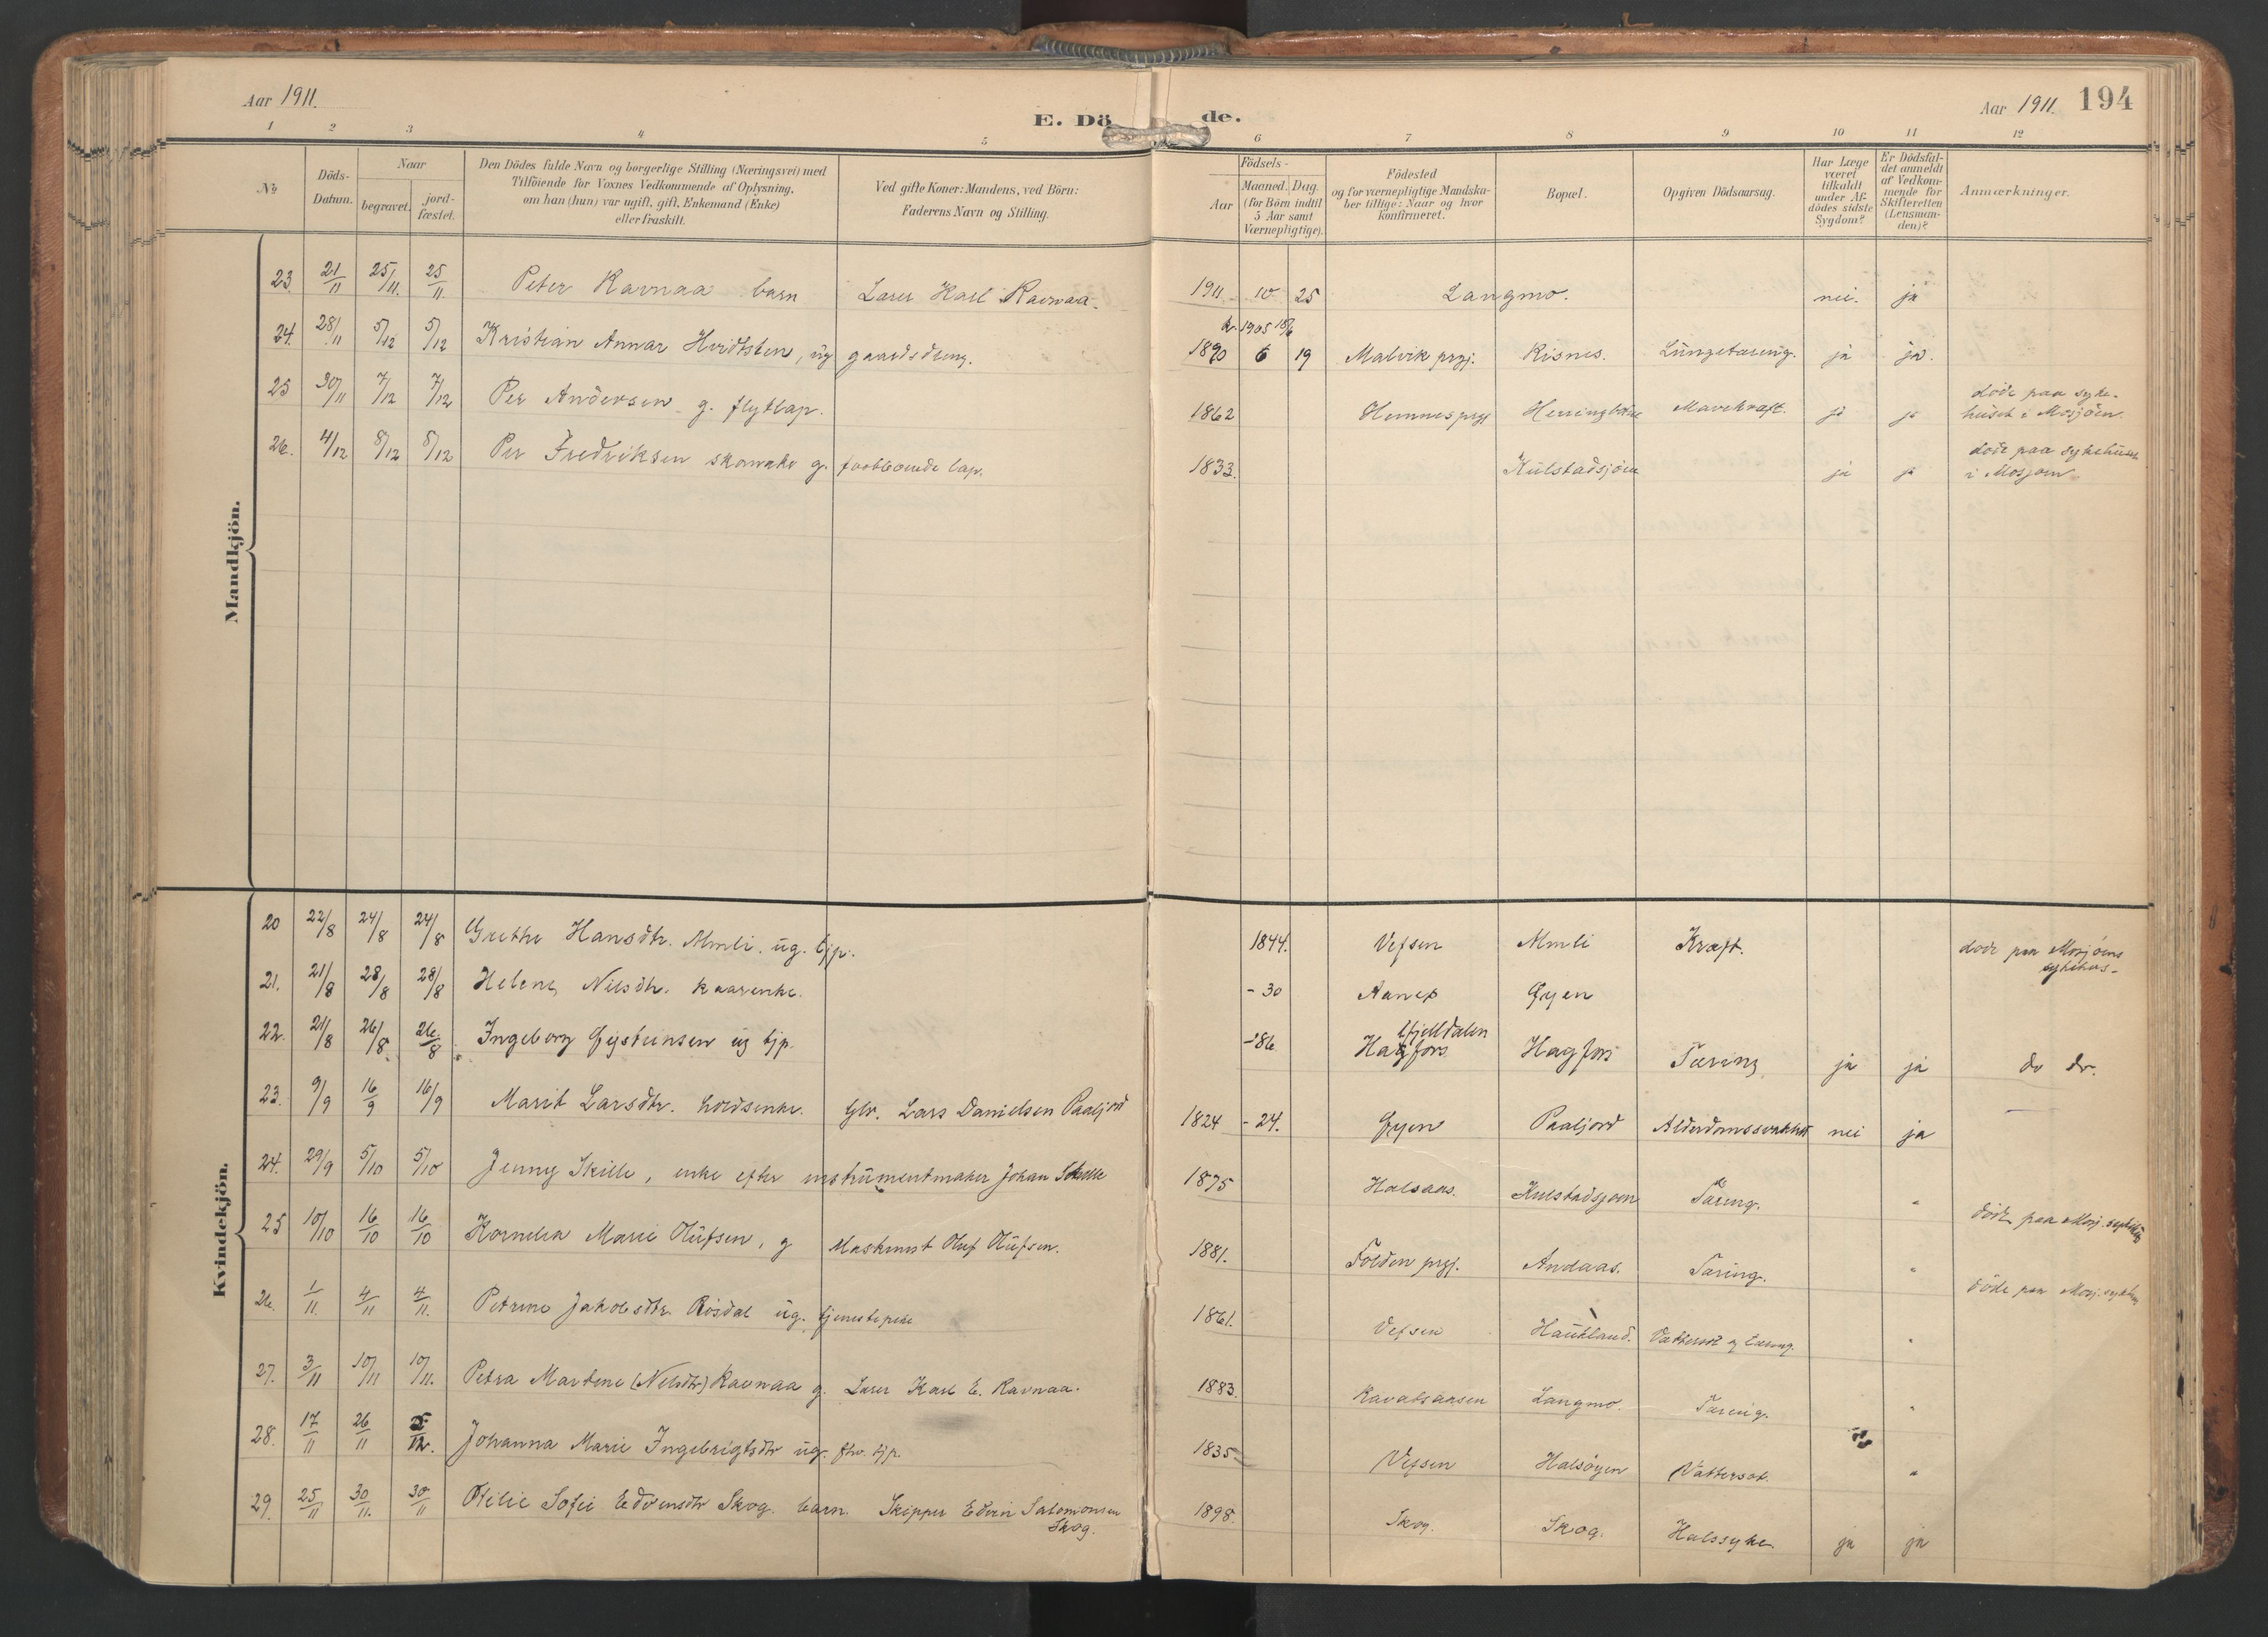 Aar 1911.
E. Dö de.
Aar 1911. 194
1 2 3 4 5 6 7 8 9 10 11 12
No
Döds-Datum.
Naar
begravet.
jord-fæstet.
Den Dödes fulde Navn og borgerlige Stilling (Næringsvei) med
Tilföiende for Voxnes Vedkommende af Oplysning,
om han (hun) var ugift, gift, Enkemand (Enke)
eller fraskilt.
Ved gifte Koner: Mandens, ved Börn:
Faderens Navn og Stilling.
Födsels-
Aar
Maaned. Dag.
(for Börn indtil
5 Aar samt
Værnepligtige).
Födested
og for værnepligtige Mandska-
ber tillige: Naar og hvor
konfirmeret.
Bopæl.
Opgiven Dödsaarsag.
Har Læge
været
tilkaldt
under Af-
dödes sidste
Sygdom?
Er Dödsfal-
det anmeldt
af Vedkom-
mende for
Skifteretten
(Lensman-
den)?
Anmærkninger.
Mandkjön.
23. 21/11 25/11. 25/11. Peter Ravnaa barn Laser Karl Ravnaa. 1911. 10 25 Langmo. nei. ja
k. 1905 18/6
24. 28/11 5/12 5/12 Kristian Annar Hvidtsten, ug gaardsdreng. 1890 6 19 Malvik prgj. Risnes. Lungetæring. ja ja.
25 30/11 7/12 7/12 Per Andersen g. flytlap. 1862 Hemnes prgj Mavekræft. ja ja döde paa syke-
huset i Mosjöen.
26. 4/12 8/12 8/12 Per Fredriksen g. fastboende lap. 1833. Kulstadsjöen ja ja döde paa sykehuset
i Mosjöen
Kvindekjön.
20 22/8 24/8 24/8 Grethe Hansdtr. Almli. ug. tjp. 1844. Vefsen Almli Kræft. döde paa Mosjöens
sykehus-
21. 21/8 28/8 28/8 Helene Nilsdtr. kaarenke. - 30 Aanes Öyen
22. 21/8 26/8 26/8 Ingeborg Öystensen ug tjp. - 86 Hagfors Hagfors Tæring ja ja do do.
23. 9/9 16/9 16/9 Marit Larsdtr. Glv. Lars Danielsen Paaljord 1824 - 24. Öyen Paaljord Alderdomssvakhet nei ja
24. 29/9 5/10 5/10 Jenny Skille, enke efter instrumentmaker Johan Skille 1875 Halsaas. Kulstadsjøen Tæring. " döde paa Mosj. sykehus
25 10/10 16/10 16/10 Kornelia Marie Olufsen, g Maskinist Oluf Olufsen. 1881. Folden prgj. Andaas. Tæring. " döde paa Mosj. sykehus
26. 1/11. 4/11 4/11. Petrine Jakobsdtr. Rösdal ug. tjenestepike 1861. Vefsen Haukland. Vattersot og tæring. "
27. 3/11 10/11 10/11. Petra Martine (Nilsdtr) Ravnaa g. Laser Karl E. Ravnaa. 1883. Langmo. Tæring. "
28. 17/11 26/11 5/12. Johanna Marie Ingebrigtsdtr ug. fhv. tjp. 1835 Vefsen Halsöyen Vattersot. "
29. 25/11 30/11. 30/11 Otilie Sofie Edvinsdtr Skog. barn. Skipper Edvin Salomonsen
Skog. 1898. Skog. Skog. Halssyke. ja ja